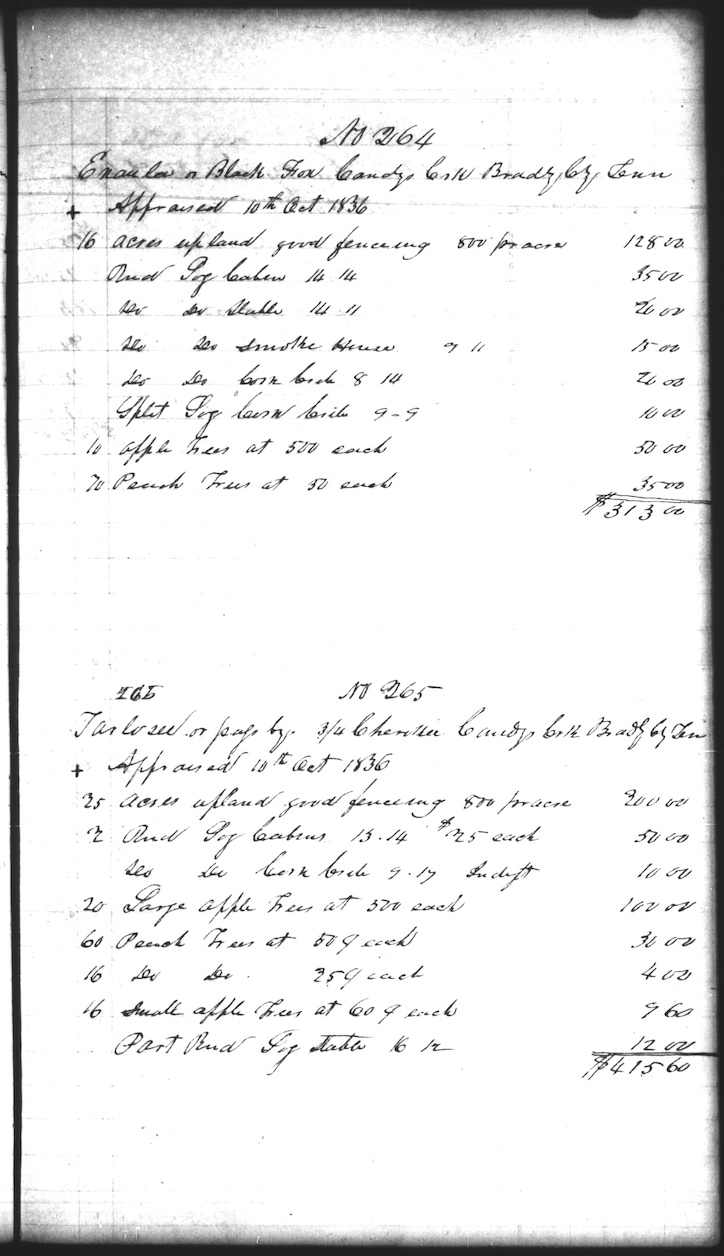 No 264
Enaula or Black Fox Candys Crk Bradly Cty Tenn
+ Appraised 10th Oct 1836
16 acres upland good fencing 800 pr acre 128 00
Rnd Log Cabin 14 14 35 00
do do Stable 14 11 20 00
do do Smoke House 9 11 15 00
do Do Corn Crib 8 14 20 00
Split Log Corn Crib 9-9 10 00
10 apple Trees at 500 each 50 00
70 Peach Trees at 50 each 35 00
$313 00
No 265
or 3/4 Cherokee Candys Crk Bradly Cty Ten
+ Appraised 10th Oct 1836
25 acres upland good fencing 800 pr acre 200 00
2 Rnd Log Cabins 13.14 $25 each 50 00
do Do Corn Crib 9.17 Indift 10 00
20 Large apple Trees at 500 each 100 00
60 Peach Trees at 50 ¢ each 30 00
16 do Do. 25 ¢ each 4 00
16 Small apple Trees at 60 ¢ each 9 60
Part Rnd Log Stable 16 12 12 00
$415 60